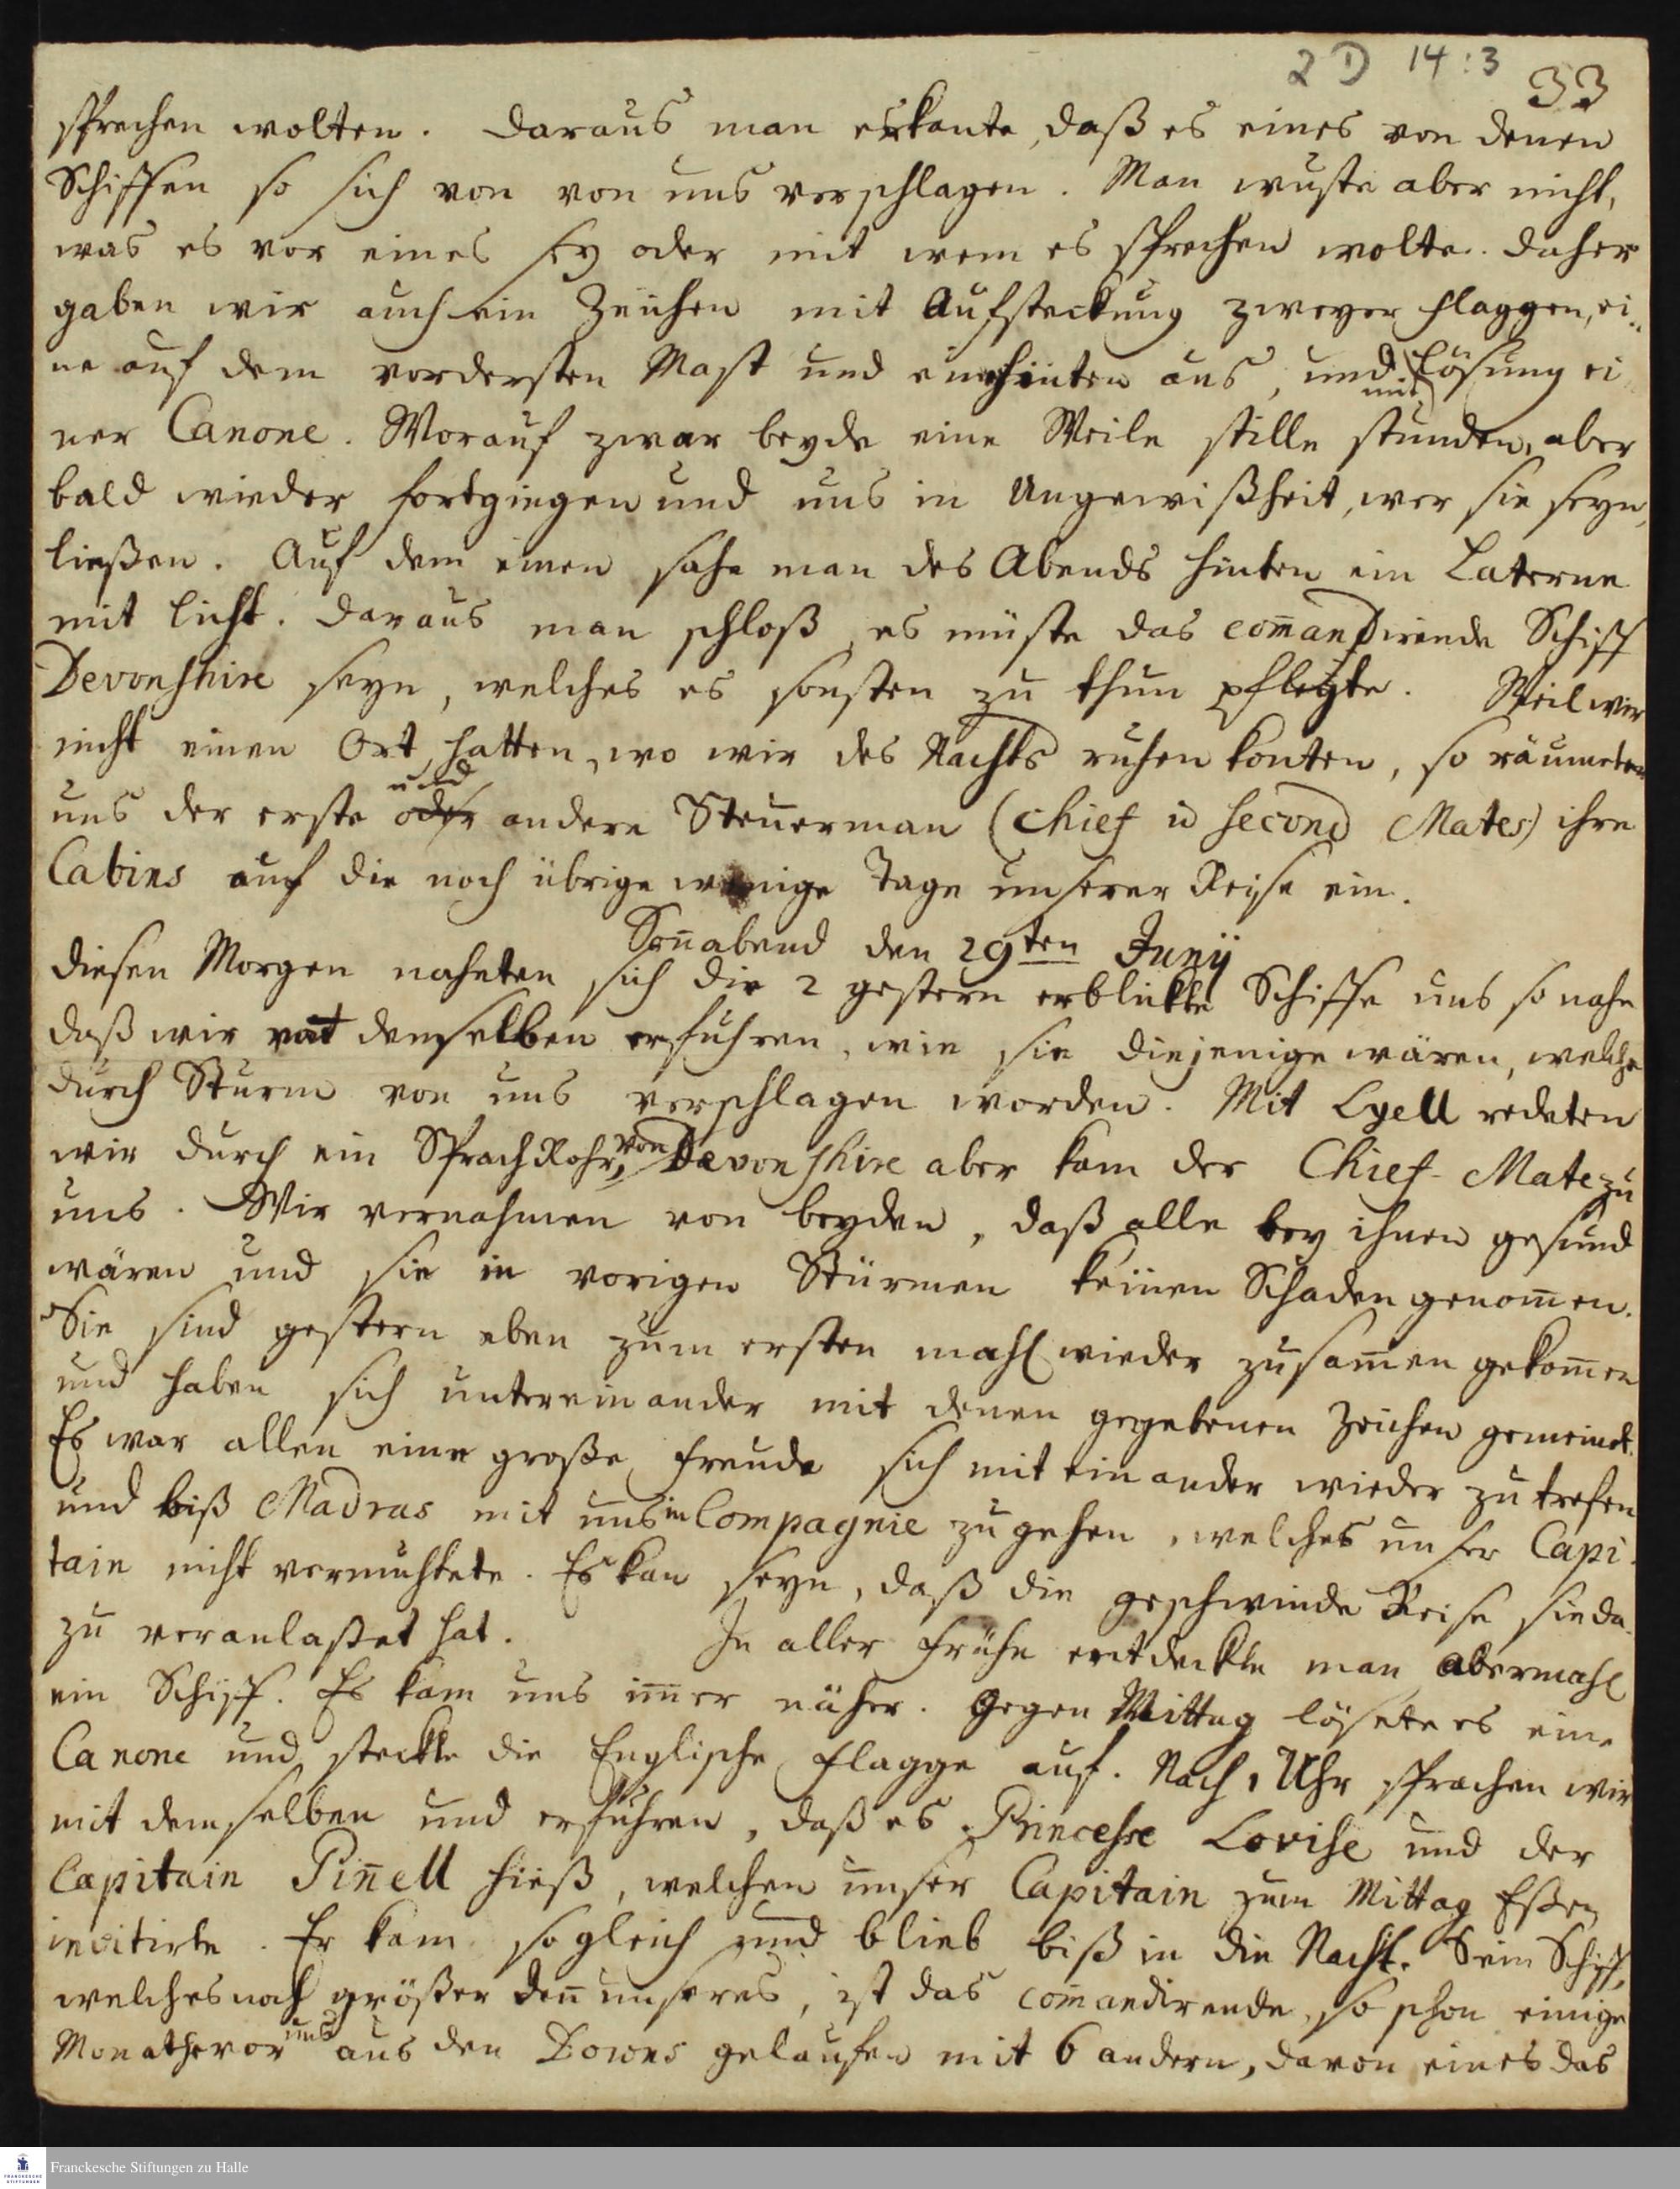 2 D 14:3
33
sprechen wolten. Daraus man erkante, daß es eines von denen
Schiffen so sich von von uns verschlagen. Man wuste aber nicht,
was es vor eines sey oder mit wem es sprechen wolte. Daher
gaben wir auch ein Zeichen mit Aufsteckung zweyer Flaggen, ei-
ne auf dem vordersten Mast und eine hinten aus, und mit Lösung ei
ner Canone. Worauf zwar beyde eine Weile stille stunden, aber
bald wieder fortgiengen und uns in Ungewißheit, wer sie seyn,
ließen. Auf dem einen sahe man des Abends hinten ein Laterne
mit Licht. Daraus man schloß, es müste das com̄andirende Schiff
Devonshire seyn, welches es sonsten zu thun pflegte. Weil wir
nicht einen Ort hatten, wo wir des Nachts ruhen konten, so räumeten
uns der erste und andere Steuerman (chief u second Mates) ihre
Cabins auf die noch übrige wenige Tage unserer Reise ein.
Son̄abend den 29ten Junÿ
Diesen Morgen naheten sich die 2 gestern erblickte Schiffe uns so nahe
daß wir von denselben erfuhren, wie sie diejenige wären, welche
durch Sturm von uns verschlagen worden. Mit Lyell redeten
wir durch ein SprachRohr, von Devonshire aber kam der Chief-Mate zu
uns. Wir vernahmen von beyden, daß alle bey ihnen gesund
wären und sie in vorigen Stürmen keinen Schaden genom̄en.
Sie sind gestern eben zum ersten mahl wieder zusam̄en gekom̄en
und haben sich untereinander mit denen gegebenen Zeichen gemeindt.
Es war allen eine große Freude sich mit einander wieder zu trefen
und biß Madras mit uns in Compagnie zu gehen, welches unser Capi-
tain nicht vermuhtete. Es kan seyn, daß die geschwinde Reise sie da-
zu veranlaßet hat. In aller Frühe entdeckte man abermahl
ein Schiff. Es kam uns im̄er näher. Gegen Mittag lösete es eine
Canone und steckte die Englische Flagge auf. Nach 1 Uhr sprachen wir
mit demselben und erfuhren, daß es Princesse Lovise und der
Capitain Pin̄ell hieß, welchen unser Capitain zum Mittag Eßen
invitirte. Er kam sogleich und blieb biß in die Nacht. Sein Schiff,
welches noch größer den̄ unseres, ist das com̄andirende, so schon einige
Monathe vor uns aus den Downs gelaufen mit 6 andern, davon eines das
Franckesche Stiftungen zu Halle